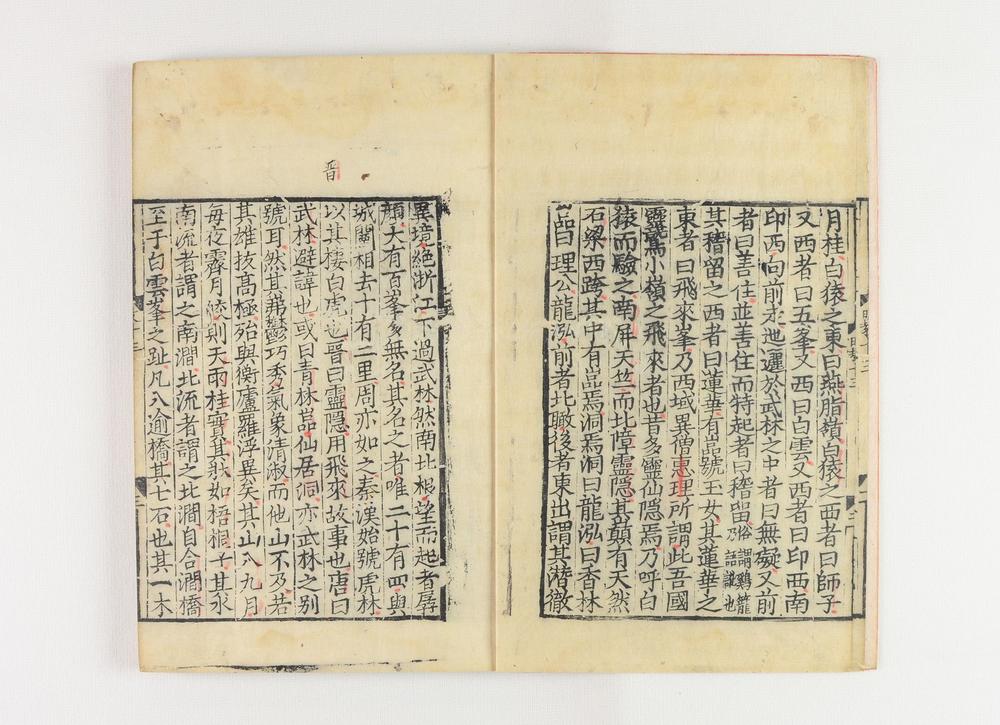 月桂白猿之東曰燕脂嶺白猿之西者曰師子
又西者曰五峯又西曰白雲又西者曰印西南
印西向前走迤邐於武林之中者曰無礙又前
者曰善住並善住而特起者曰稽留俗謂鷄籠乃語訛也
其稽留之西者曰蓮華有嵒號玉女其蓮華之
東者曰飛來峯乃西域異僧惠理所謂此吾國
靈鷲小嶺之飛來者也昔多靈仙隱焉乃呼白
猿而驗之南屏天竺而北障靈隱其巔有天然
石梁西跨其中有嵒焉洞焉洞曰龍泓曰香林
嵒曰理公龍泓前者北瞰後者東出謂其潛徹
晋
異境絶浙江下過武林然南北根望而起者孱
顔大有百峯多無名其名之者唯二十有四與
城闉相去十有二里周亦如之秦漢始號虎林
以其棲白虎也晉曰靈隱用飛來故事也唐曰
武林避諱也或曰青林嵒仙居洞亦武林之别
號耳然其弗鬱巧秀氣象清淑而他山不乃若
其雄拔高極殆與衡廬羅浮異矣其山八九月
每夜霽月皎則天雨桂實其狀如梧桐子其水
南流者謂之南澗北流者謂之北澗自合澗橋
至于白雲峯之趾凡八逾橋其七石也其一木